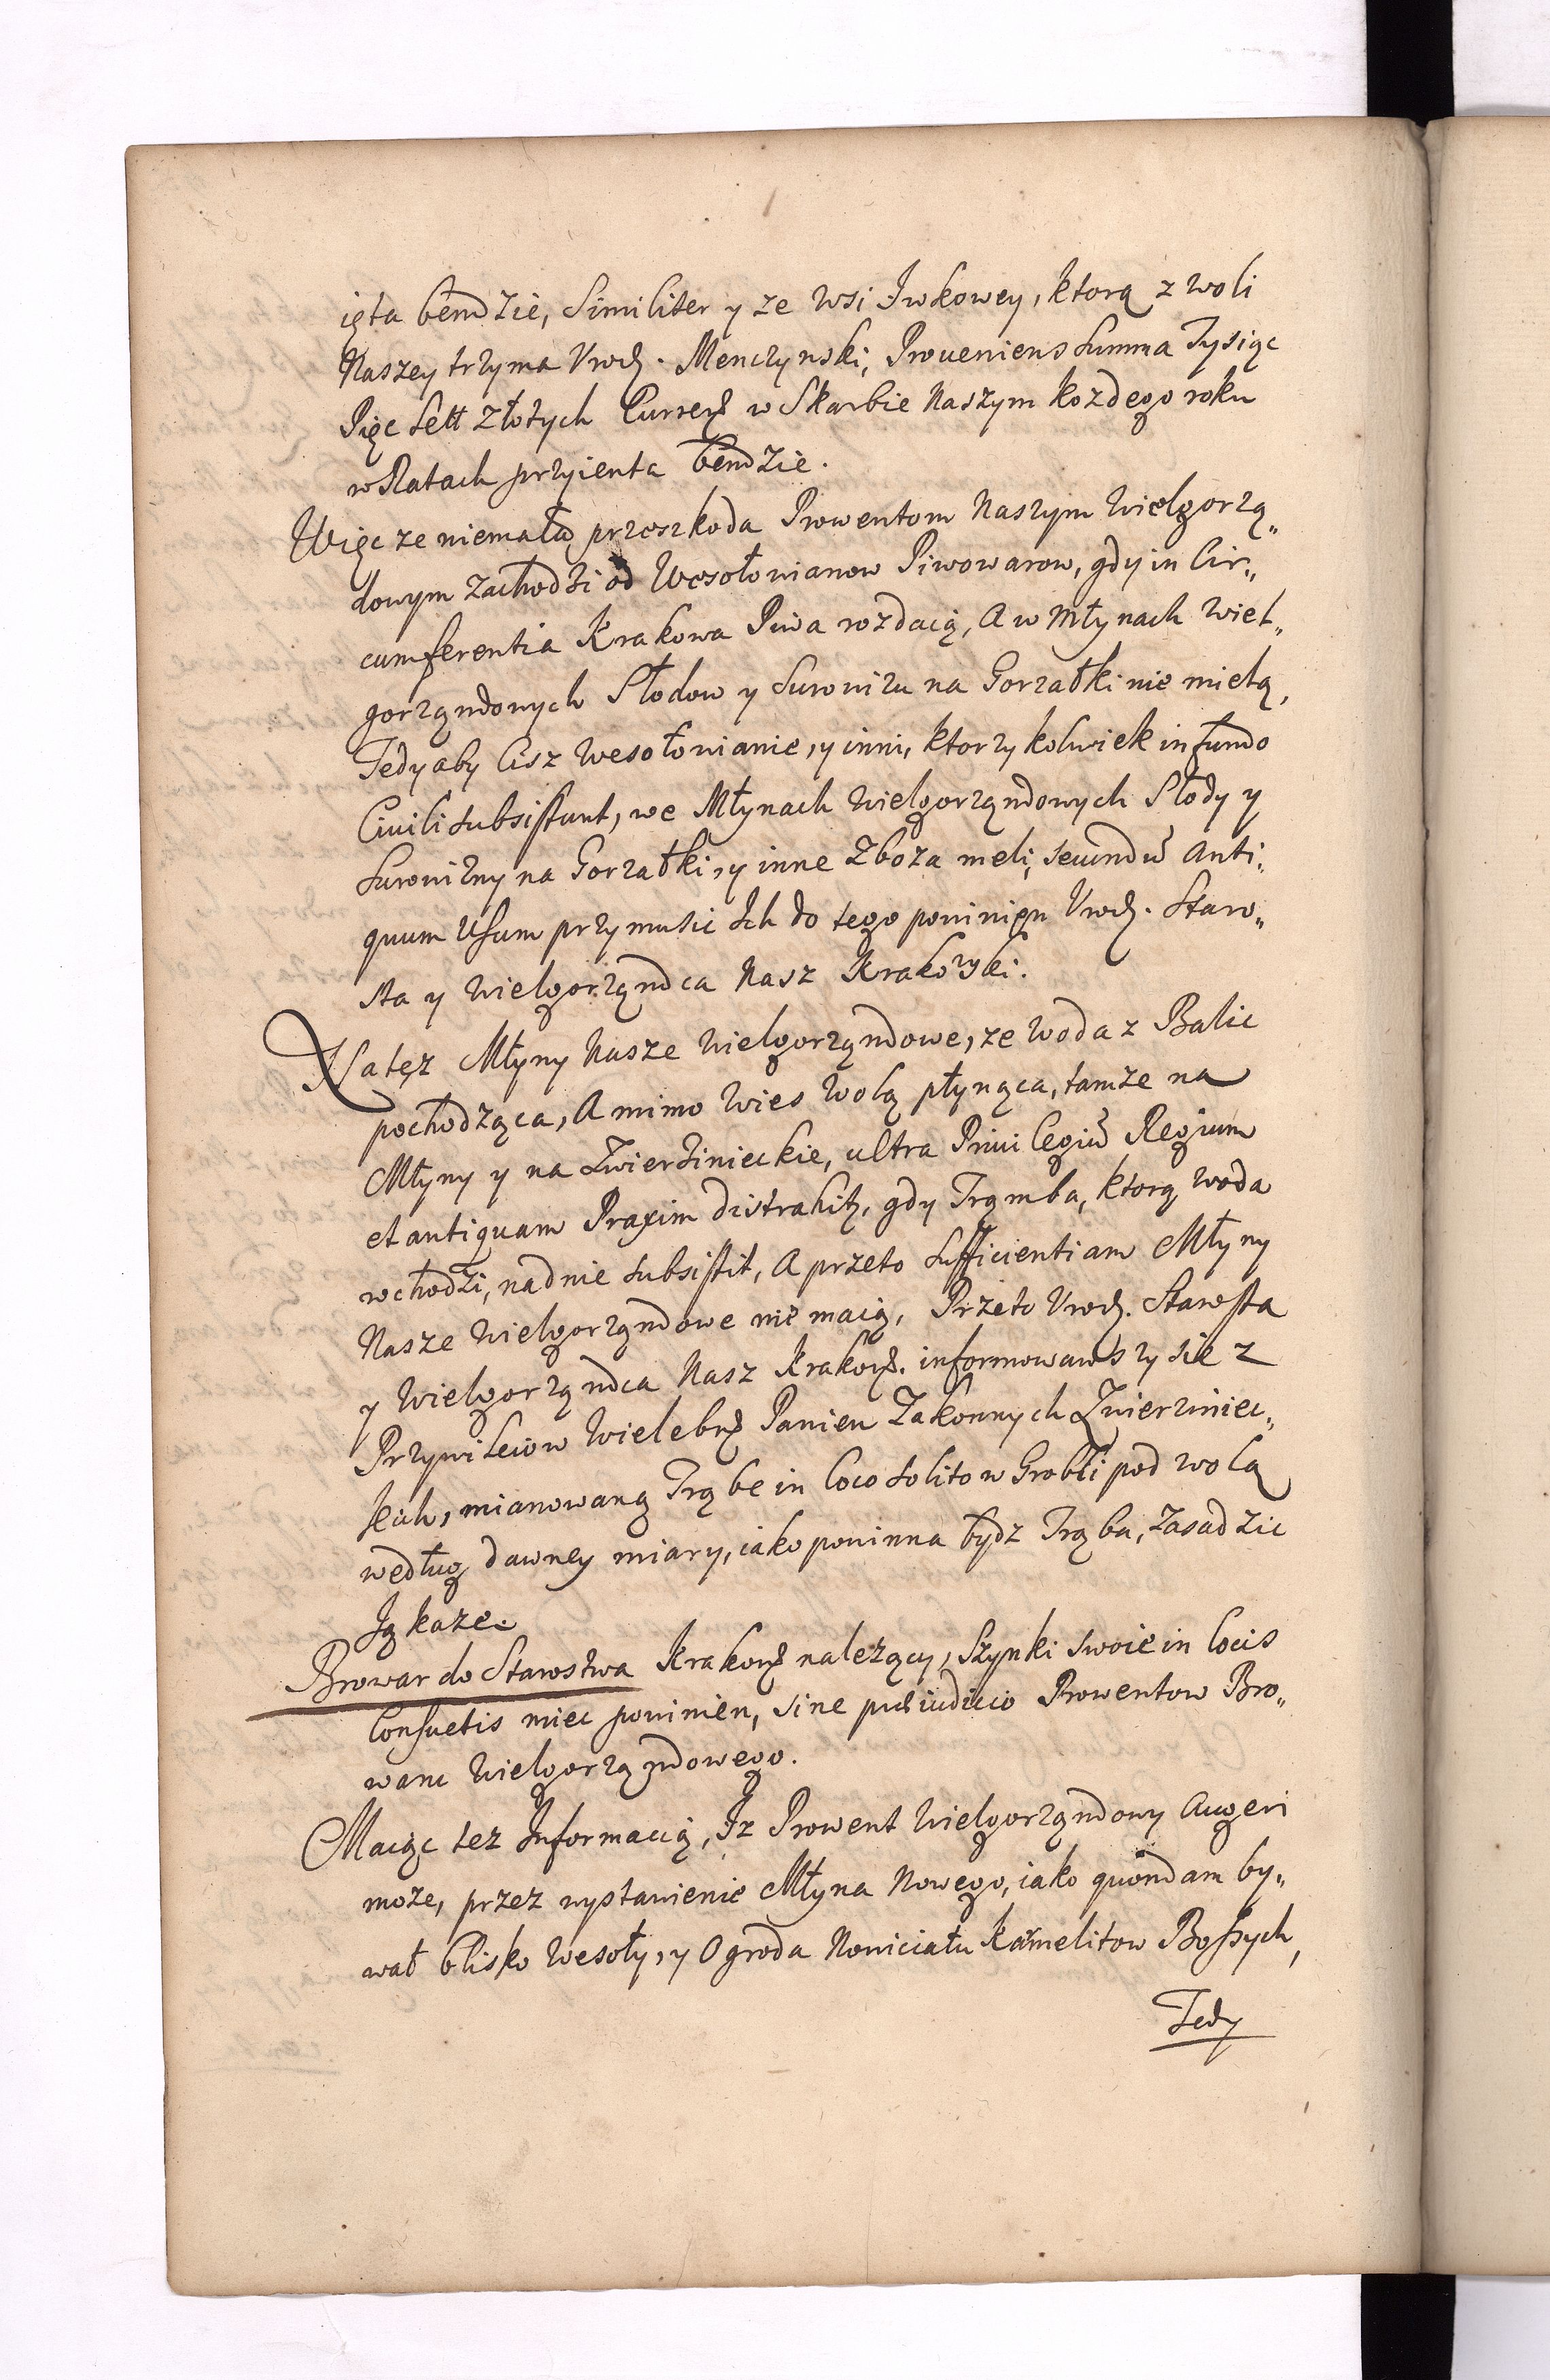 ięta bendzie, Similiter y ze wsi Iwkowey, ktorą z woli
Naszey trzyma Urodz. Menczynski, Proueniens Summa Tysiąc
Pięc Sett Złotych Currens w Skarbie Naszym kozdego roku
w Ratach przyienta bendzie.
Więc ze niemała przeszkoda Prowentom Naszym Wielgorzą„
dowym zachodzi od Wesołonianow Piwowarow, gdy in Cir„
cumferentia Krakowa Piwa rozdaią, A w Młynach Wiel„
gorządowych Słodow y Surowizu na Gorzałki nie mielą,
Tedy aby Cisz Wesołonianie, y inni, ktorzykolwiek in fundo
Ciuili subsistunt, we Młynach Wielgorządowych Słody y
Surowizny na Gorzałki, y inne Zboza meli, secundũ Anti„
quum Usum przymusic Ich do tego powinien Urodz. Staro„
sta y Wielgorządca Nasz Krakowski.
Na tęz Młyny Nasze Wielgorządowe, ze Woda z Balic
pochodząca, A mimo Wies Wolą płynąca, tamze na
Młyny y na Zwierzinieckie, ultra Priuilegiũ Regium
et antiquam Praxim distrahitz, gdy Trąmba, ktorą woda
wchodzi, na dnie subsistit, A przeto Sufficientiam Młyny
Nasze Wielgorządowe nie maią, Przeto Urodz. Starosta
y Wielgorządca Nasz Krakows. informowawszy sie z
Przywileiow Wielebnych Panien Zakonnych Zwierziniec„
kich, mianowaną Trąbe in loco solito w Grobli pod wolą
według dawney miary, iako powinna bydz Trąba, zasadzic
Ią kaze.
Browar do Starostwa Krakows nalezący, Szynki swoie in locis
Consuetis miec powinien, sine præiudicio Prowentow Bro„
waru Wielgorządowego.
Maiąc tez Informacią, Iz Prowent Wielgorządowy Augeri
moze, przez wystawienie Młyna Nowego, iako quondam by„
wał blisko Wesoły, y Ogroda Nowiciatu Karmelitow Bossych,
Tedy